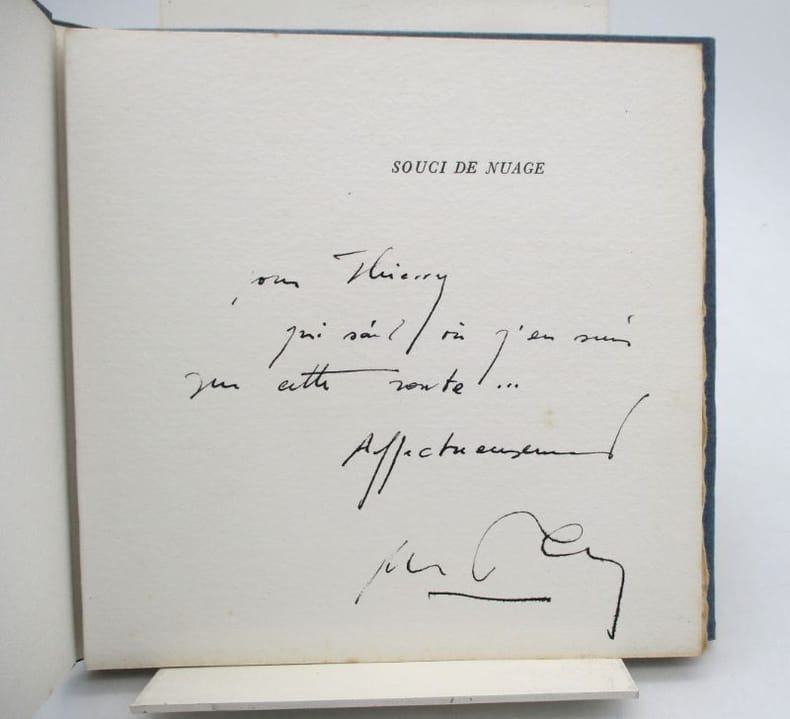 SOUCI DE NUAGE
pour Thierry
qui sait où j'en suis
sur cette route ...
Affectueusement